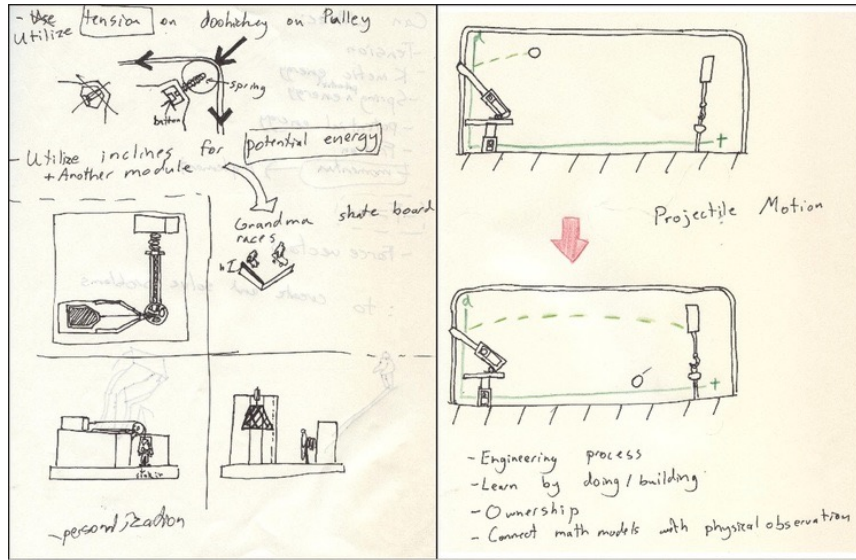 - Use tension on doohickey on Pulley
Utilize
spring
button
- Utilize inclines for potential energy
+ Another module
Grandma skate board
races
- personalization
d
t
Projectile Motion
d
t
- Engineering process
- Learn by doing/building
- Ownership
- Connect math models with physical observation